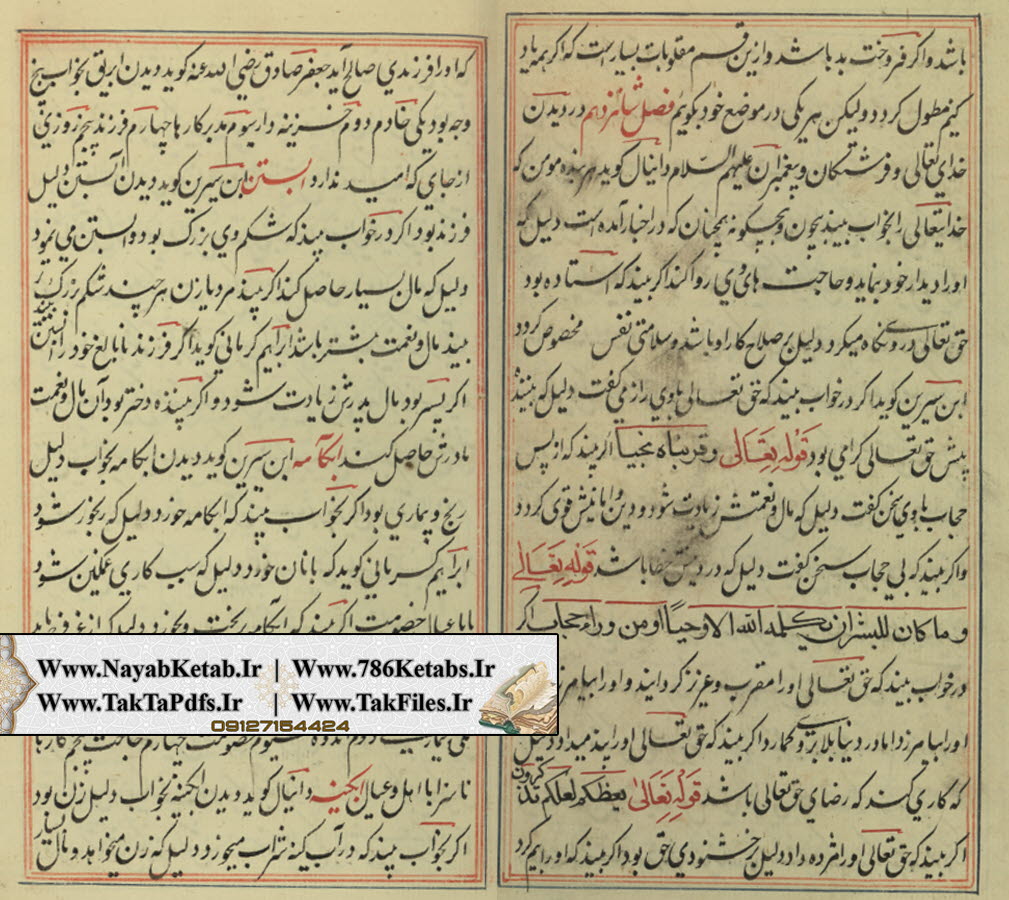 باشد واکر فروخت بد باشد و ازین قسم مقلوبات بسیارست که اکر همه یاد
کنیم مطول کردد ولیکن هر یکی در موضع خود بکویم فصل شانزدهم در دیدن
خدای تعالی و فرشتکان و پیغمبران علیهم السلام دانیال کوید هر بنده مومن که
خدایتعالی را بخواب بیند بیچون و بیچکونه همچنان که در اخبار آمده است دلیل که
او را دیدار خود بنماید و حاجت های وی روا کند اکر بیند که استاده بود
حق تعالی در وی نکاه میکرد دلیل بر صلاح کار او باشد و سلامتی نفس مخصوص کردد
ابن سیرین کوید اکر در خواب بیند که حق تعالی با وی راز می کفت دلیل که بنده
پیش حق تعالی کرامی بود قوله تعالی و قربناه نجیا اکر بیند که از پس
حجاب با وی سخن کفت دلیل که مال و نعمتش زیادت شود و دین و امانتش قوی کردد
واکر بیند که بی حجاب سخن کفت دلیل که در دینش خطا باشد قوله تعالی
وما کان للبشر ان یکلمه الله الا وحیا او من وراء حجاب اکر
در خواب بیند که حق تعالی او را مقرب و عزیز کردانید و او را بیامرزد
او را بیامرزد اما در دنیا بلا بر وی کمارد اکر بیند که حق تعالی او را پند میداد دلیل
که کاری کند که رضای حق تعالی باشد قوله تعالی یعظکم لعلکم تذکرون
اکر بیند که حق تعالی او را مژده داد دلیل بر خشنودی حق بود اکر بیند که او را بیم کرد
که او را فرزندی صالح آید جعفر صادق رضی الله عنه کوید دیدن ابریق بخواب پنج
وجه بود یکی خادم دوم خزینه دار سوم مدبر کارها چهارم فرزند پنجم روزی
از جای که امید ندارد ابستن ابن سیرین کوید دیدن ابستن دلیل
فرزند بود اکر در خواب بیند که شکم وی بزرک بود و ابستن می نمود
دلیل که مال بسیار حاصل کند اکر بیند مرد یا زن هر چند شکم بزرک تر
بیند مال و نعمت بیشتر باشد ابراهیم کرمانی کوید اکر فرزند نابالغ خود را ابستن بیند
اکر پسر بود مال پدرش زیادت شود و اکر بیننده دختر بود آن مال و نعمت
مادرش حاصل کند ابکامه ابن سیرین کوید دیدن ابکامه بخواب دلیل
رنج و بیماری بود اکر بخواب بیند که ابکامه خورد دلیل که رنجور شود
ابراهیم کرمانی کوید که با نان خورد دلیل که بسبب کاری غمکین شود
Www.NayabKetab.Ir | Www.786Ketabs.Ir
Www.TakTaPdfs.Ir | Www.TakFiles.Ir
09127154424
ناسزا با اهل و عیال ابکینه دانیال کوید دیدن ابکینه بخواب دلیل زن بود
اکر بخواب بیند که در آبکینه شراب میخورد دلیل که زن میخواهد و مال بسیار